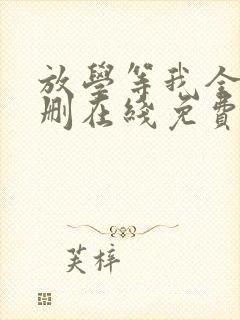 放學等我全
刪在綫免費
芙梓